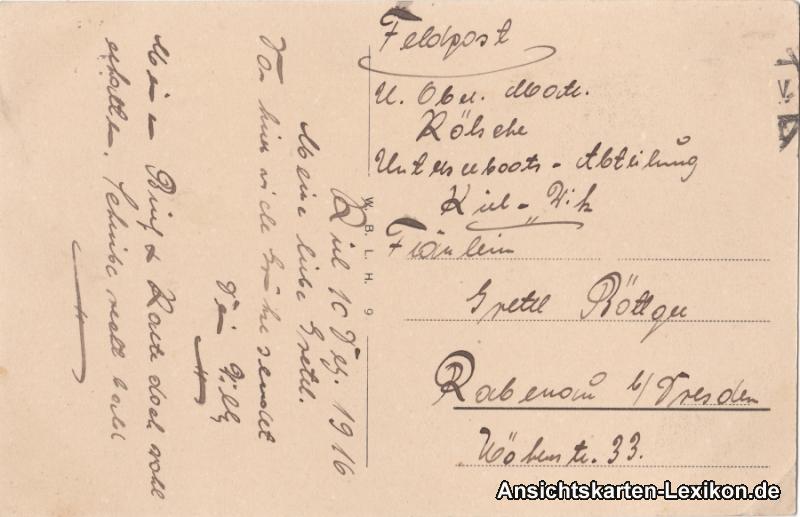 Feldpost
U. Ober. Matr.
Kölsche
Unterseeboots-Abteilung
Kiel-Wik
Fräulein
Gretel Böttger
Rabenau b/Dresden
33.
W. B. L. H. 9
Kiel 10 Dez. 1916
Meine liebe Gretel.
Von hier viele Grüße sendet
Dein Willy
Meinen Brief & Karte doch wohl
erhalten. Schreibe recht bald
Ansichtskarten-Lexikon.de